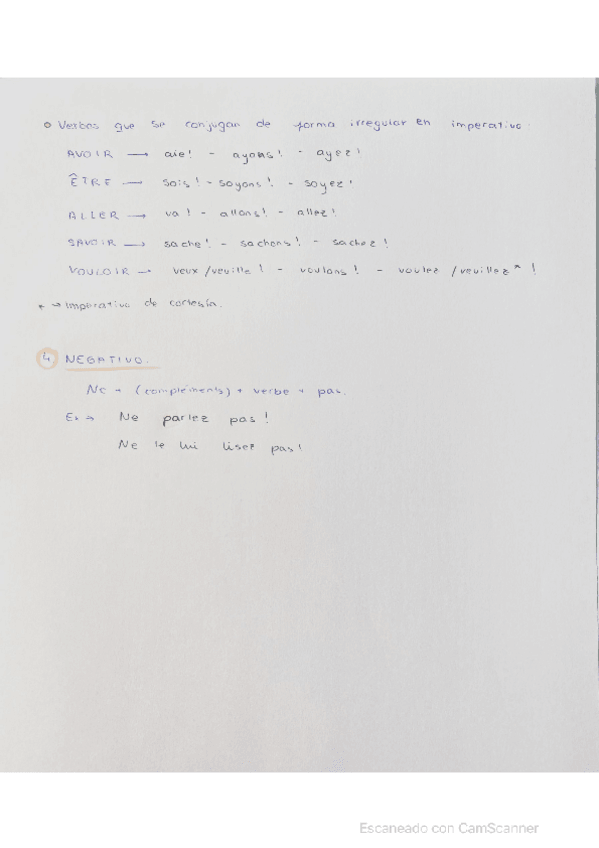 o Verbos que se conjugan de forma irregular en imperativo:
AVOIR → aie! - ayons! - ayez!
ÊTRE → sois! - soyons! - soyez!
ALLER → va! - allons! - allez!
SAVOIR → sache! - sachons! - sachez!
VOULOIR → veux/veuille! - voulons! - voulez/veuillez* !
* → Imperativo de cortesía.
4. NEGATIVO.
Ne + (compléments) + verbe + pas.
Ex → Ne parlez pas!
Ne le lui lisez pas!
Escaneado con CamScanner